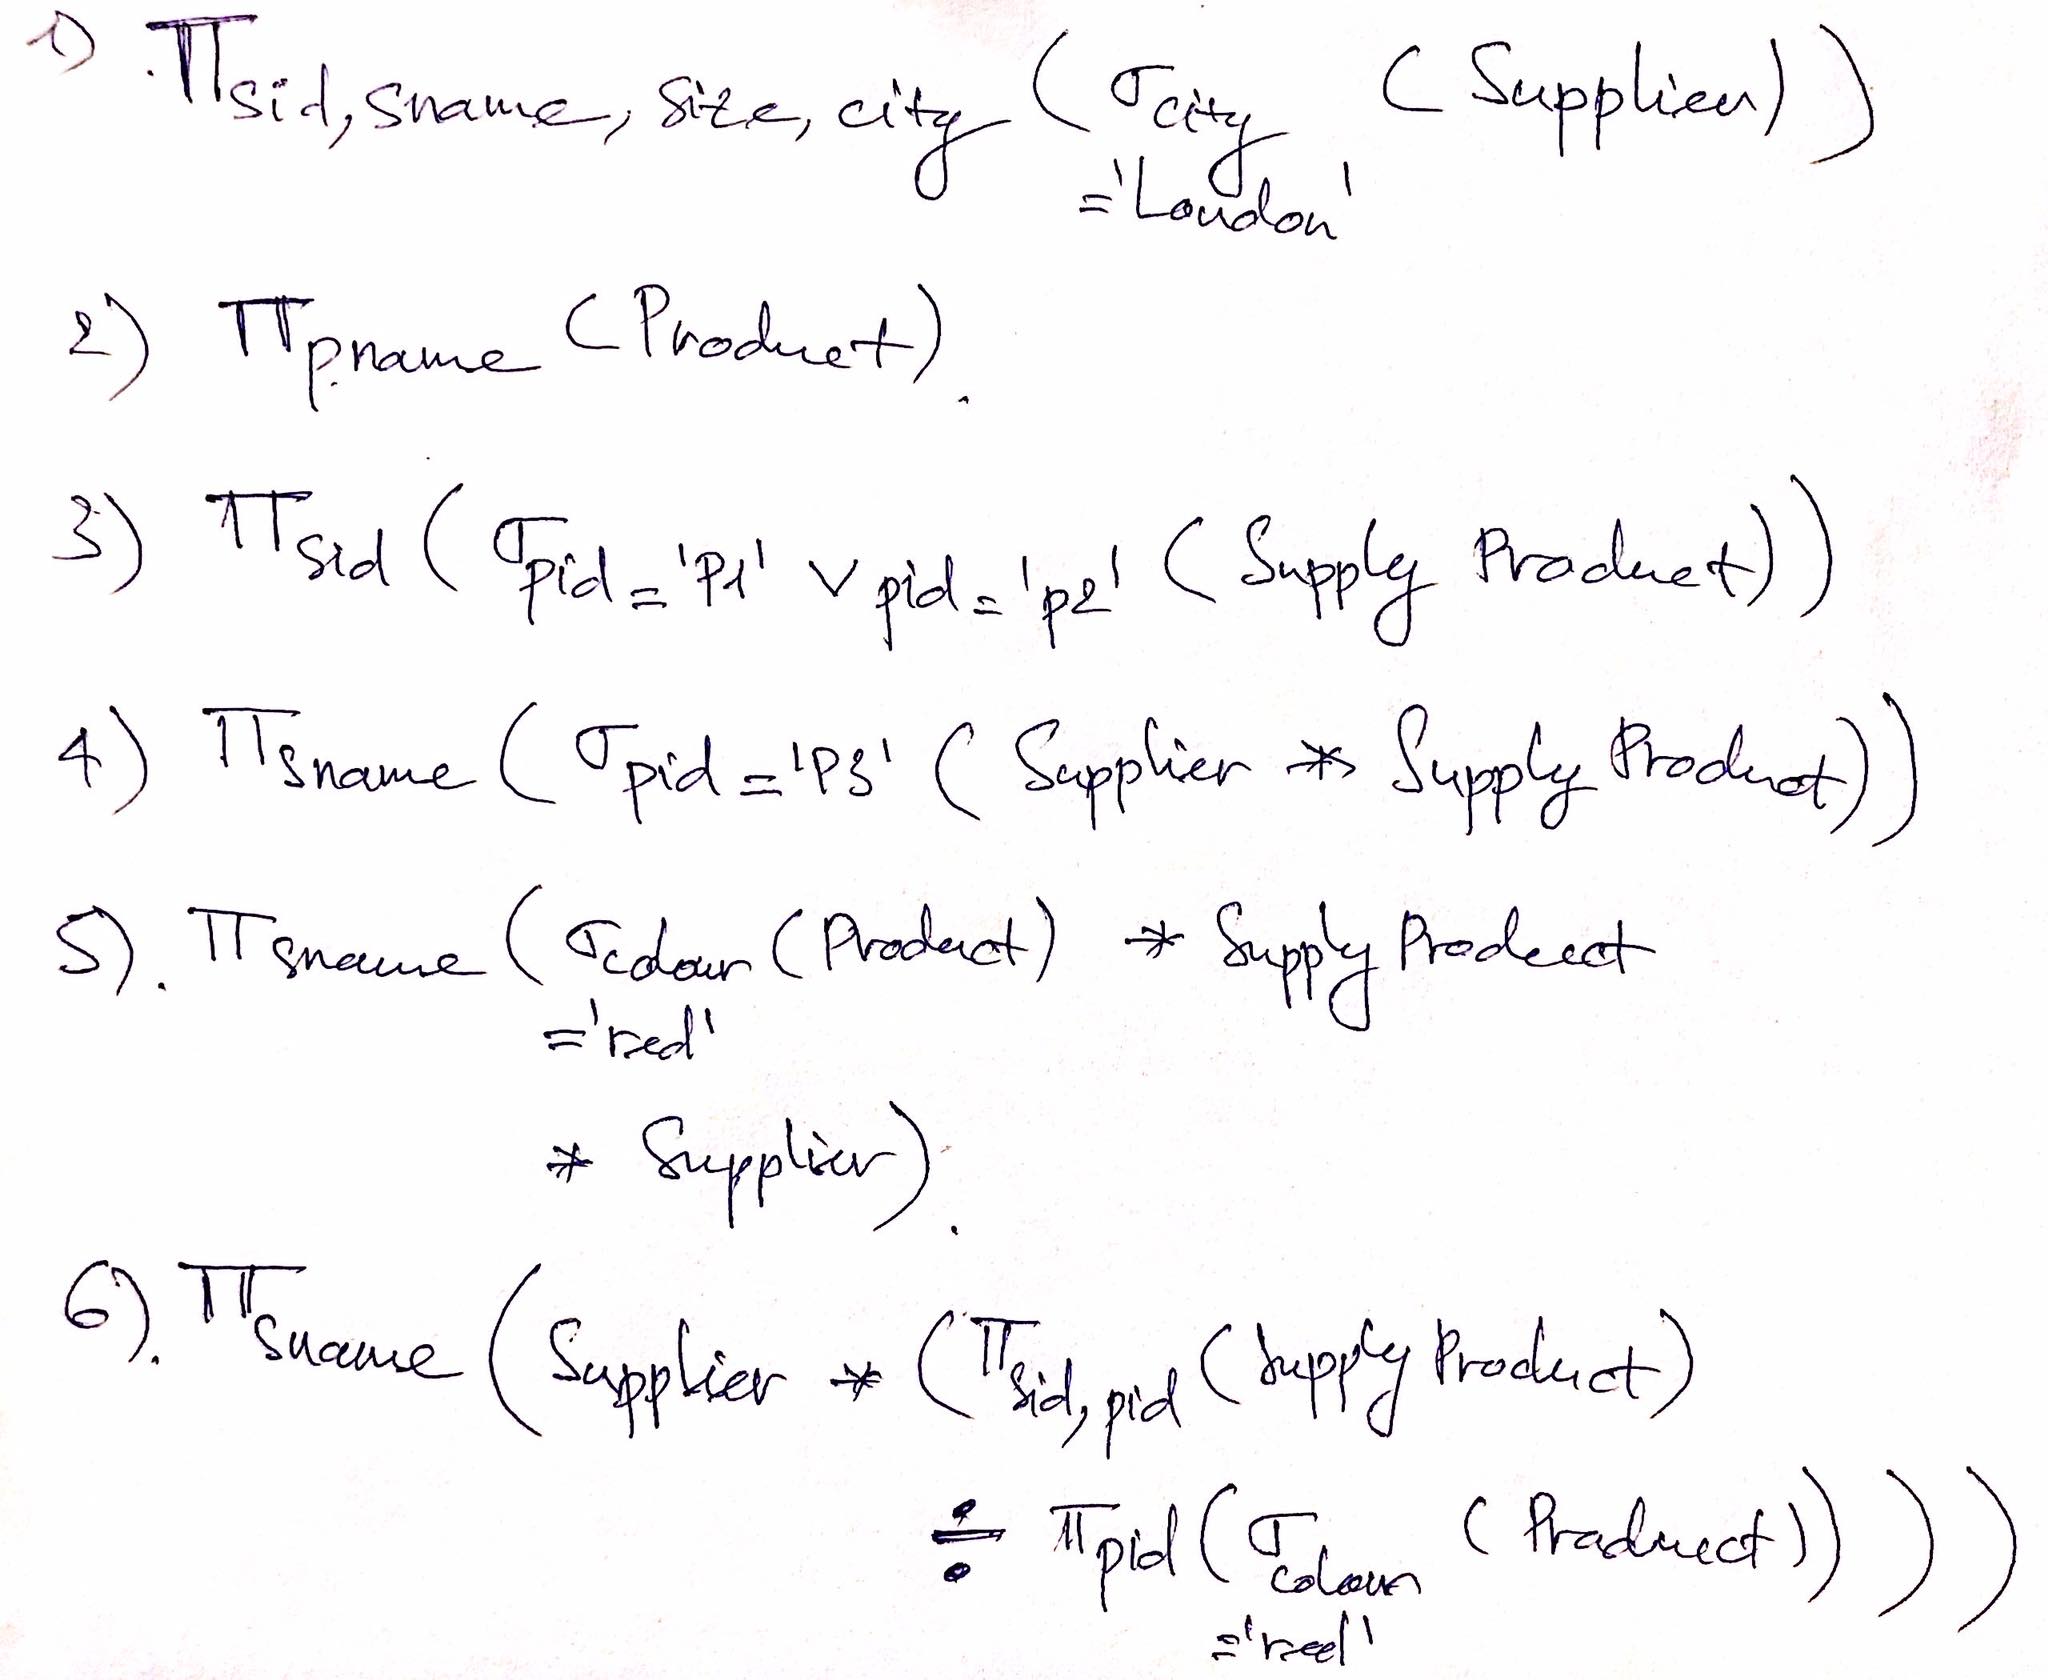 1) π sid, sname, size, city ( σ city ( Supplier ) )
= 'London'
2) π pname ( Product ).
3) π sid ( σ pid = 'P1' ∨ pid = 'p2' ( Supply Product ) )
4) π sname ( σ pid = 'P3' ( Supplier * Supply Product ) )
5). π sname ( σ colour ( Product ) * Supply Product
= 'red'
* Supplier ).
6). π sname ( Supplier * ( π sid, pid ( Supply Product )
÷ π pid ( σ colour ( Product ) ) ) )
= 'red'